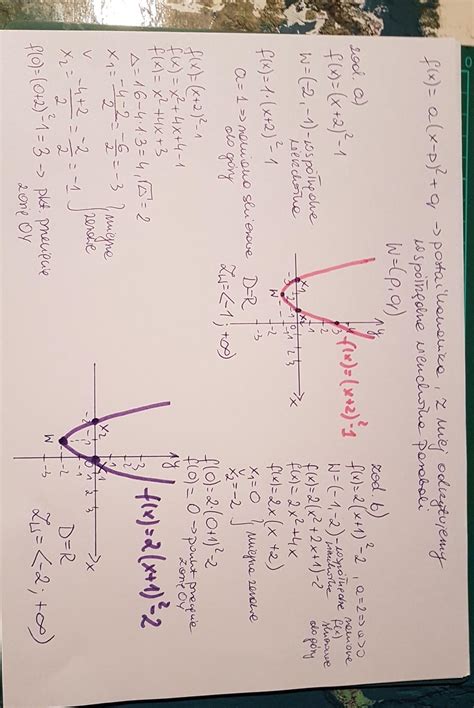 f(x) = a(x-p)²+q → postać kanoniczna, z niej odczytujemy
współrzędne wierzchołka paraboli
W=(p,q)
zad. a)
f(x)=(x+2)²-1
W=(-2,-1) - współrzędne
wierzchołka
f(x)=1·(x+2)²-1
a=1 ⇒ ramiona skierowane
do góry
f(x)=(x+2)²-1
f(x)=x²+4x+4-1
f(x)=x²+4x+3
Δ=16-4·1·3=4, √Δ=2
x₁=(-4-2)/2=-6/2=-3
v
x₂=(-4+2)/2=-2/2=-1
} miejsca
zerowe
f(0)=(0+2)²-1=3 → pkt. przecięcia
z osią Oy
y
x
W
x₁
x₂
f(x)=(x+2)²-1
D=R
Zw=<-1;+∞)
zad. b)
f(x)=2(x+1)²-2, a=2 ⇒ a>0
W=(-1,-2) - współrzędne
wierzchołka
ramiona
f(x)
do góry
f(x)=2(x²+2x+1)-2
f(x)=2x²+4x
f(x)=2x(x+2)
x₁=0
v
x₂=-2
} miejsca zerowe
f(0)=2(0+1)²-2
f(0)=0 → punkt przecięcia
z osią Oy
y
x
W
x₂
x₁
f(x)=2(x+1)²-2
D=R
Zw=<-2;+∞)